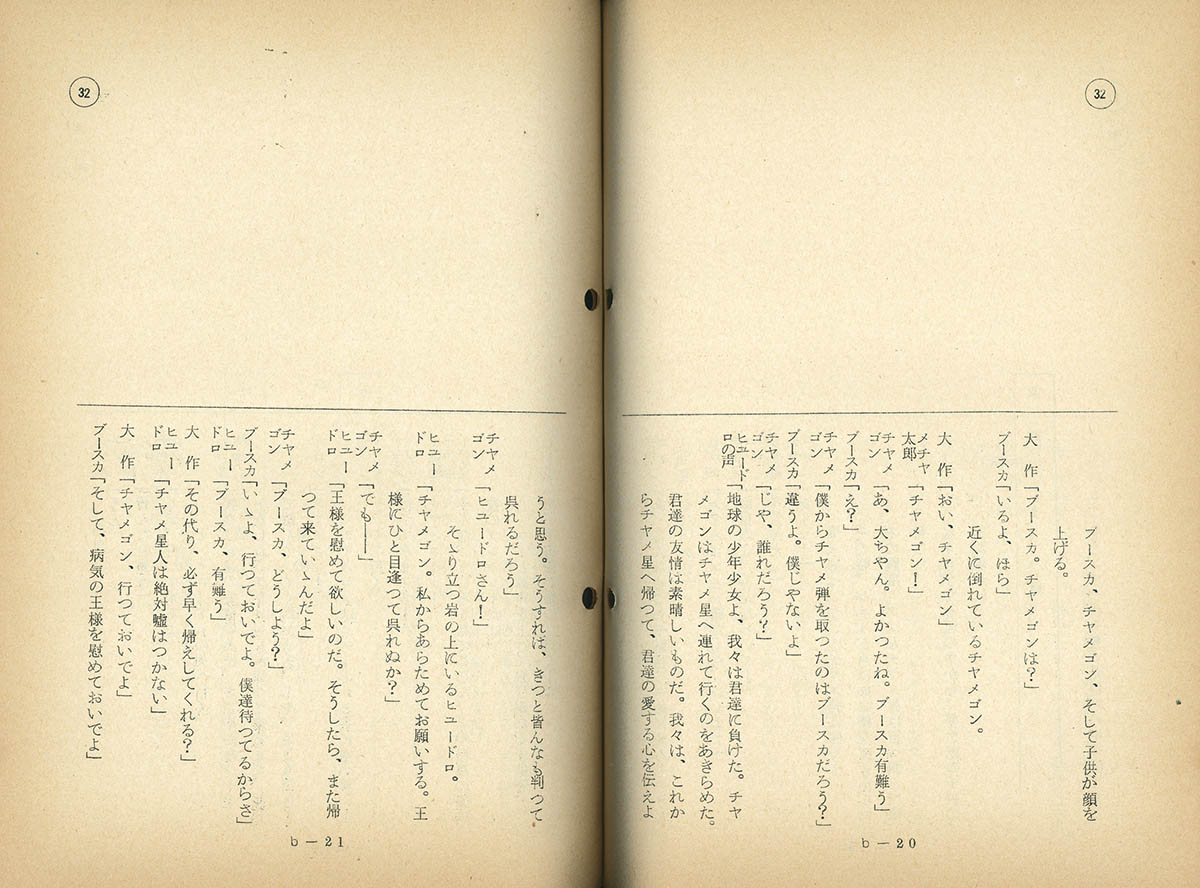 32
ブースカ、チヤメゴン、そして子供が顔を
上げる。
大　作「ブースカ。チヤメゴンは？」
ブースカ「いるよ、ほら」
近くに倒れているチヤメゴン。
大　作「おい、チヤメゴン」
メチヤ太郎「チヤメゴン！」
チヤメゴン「あ、大ちやん。よかつたね。ブースカ有難う」
ブースカ「え？」
チヤメゴン「僕からチヤメ弾を取つたのはブースカだろう？」
ブースカ「違うよ。僕じやないよ」
チヤメゴン「じや、誰れだろう？」
ヒユードロの声「地球の少年少女よ、我々は君達に負けた。チヤ
メゴンはチヤメ星へ連れて行くのをあきらめた。
君達の友情は素晴しいものだ。我々は、これか
らチヤメ星へ帰つて、君達の愛する心を伝えよ
b－20
32
うと思う。そうすれば、きつと皆んなも判つて
呉れるだろう」
チヤメゴン「ヒユードロさん！」
そゝり立つ岩の上にいるヒユードロ。
ヒユードロ「チヤメゴン。私からあらためてお願いする。王
様にひと目逢つて呉れぬか？」
チヤメゴン「でも――」
ヒユードロ「王様を慰めて欲しいのだ。そうしたら、また帰
つて来ていゝんだよ」
チヤメゴン「ブースカ、どうしよう？」
ブースカ「いゝよ、行つておいでよ。僕達待つてるからさ」
ヒユードロ「ブースカ、有難う」
大　作「その代り、必ず早く帰えしてくれる？」
ヒユードロ「チヤメ星人は絶対嘘はつかない」
大　作「チヤメゴン、行つておいでよ」
ブースカ「そして、病気の王様を慰めておいでよ」
b－21